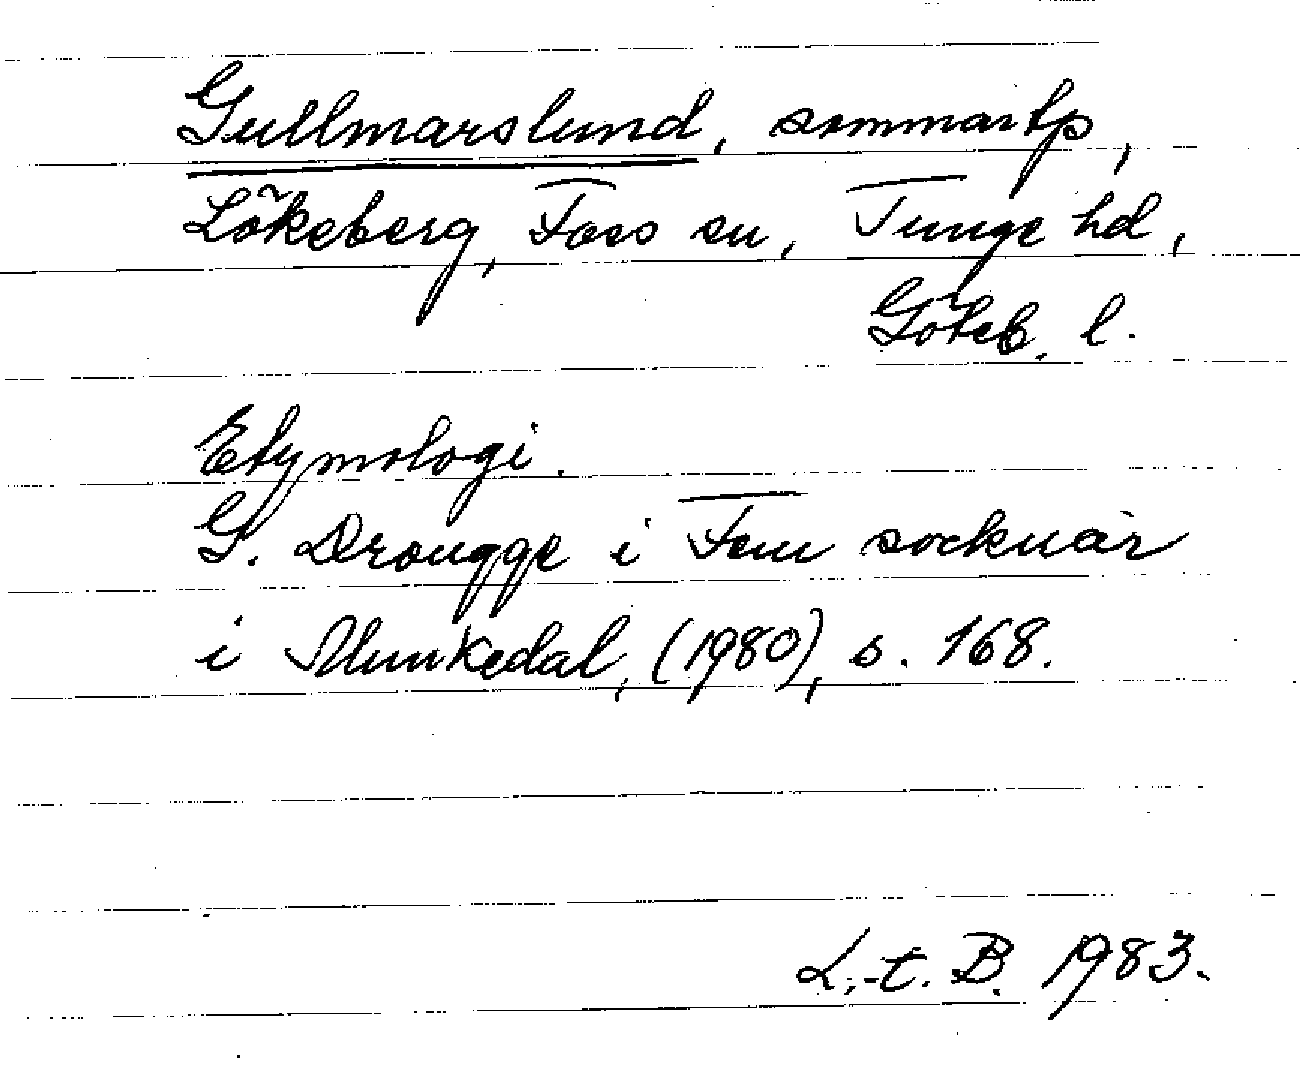 Gullmarslund, sommartp,
Lökeberg, Foss sn, Tunge hd,
Göteb. l.
Etymologi.
G. Drougge i Fem socknar
i Munkedal, (1980), s. 168.
L.-t. B. 1983.